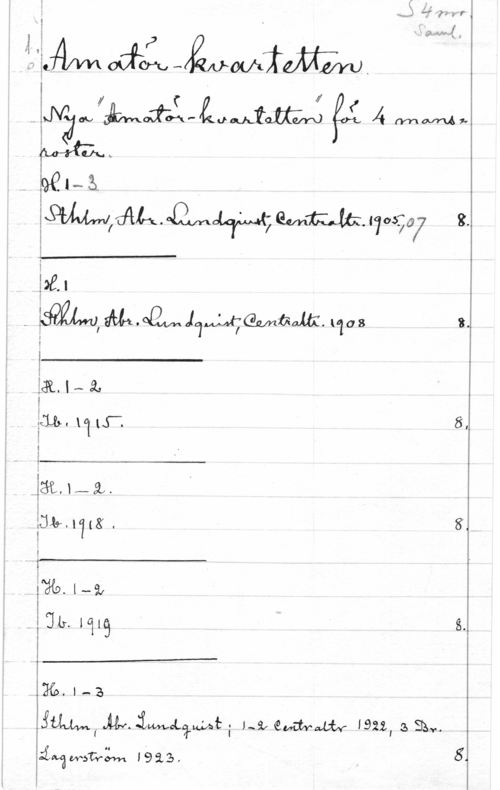 S 4 mr
Saml.
1.
Amatör-kvartetten
Nya "Amatör-kvartetten" för 4 mans-
röster.
H. 1-3
Sthlm, Abr. Lundquist, Centraltr. 1905, 07 8.
H. 1
Sthlm, Abr. Lundquist, Centraltr. 1908 8.
H. 1-2
Ib. 1915. 8.
H. 1-2.
Ib. 1918. 8.
H. 1-2
Ib. 1919 8.
H. 1-3
Sthlm, Abr. Lundquist; 1-2 Centraltr 1922, 3 Br.
Lagerström 1923. 8.